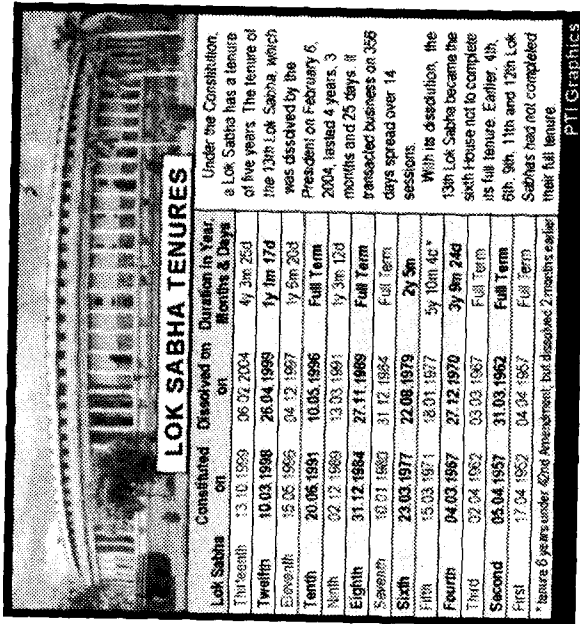 LOK SABHA TENURES
Lok Sabha Constituted on Dissolved on Duration in Year, Months & Days
Thirteenth 13.10.1999 06.02.2004 4y 3m 25d
Twelfth 10.03.1998 26.04.1999 1y 1m 17d
Eleventh 15.05.1996 04.12.1997 1y 6m 20d
Tenth 20.06.1991 10.05.1996 Full Term
Ninth 02.12.1989 13.03.1991 1y 3m 12d
Eighth 31.12.1984 27.11.1989 Full Term
Seventh 10.01.1980 31.12.1984 Full Term
Sixth 23.03.1977 22.08.1979 2y 5m
Fifth 15.03.1971 18.01.1977 5y 10m 4d*
Fourth 04.03.1967 27.12.1970 3y 9m 24d
Third 02.04.1962 03.03.1967 Full Term
Second 05.04.1957 31.03.1962 Full Term
First 17.04.1952 04.04.1957 Full Term
*tenure 6 years under 42nd Amendment, but dissolved 2 months earlier
Under the Constitution,
a Lok Sabha has a tenure
of five years. The tenure of
the 13th Lok Sabha, which
was dissolved by the
President on February 6,
2004, lasted 4 years, 3
months and 25 days. It
transacted business on 356
days spread over 14
sessions.
With its dissolution, the
13th Lok Sabha became the
sixth House not to complete
its full tenure. Earlier, 4th,
6th, 9th, 11th and 12th Lok
Sabhas had not completed
their full tenure.
PTI Graphics